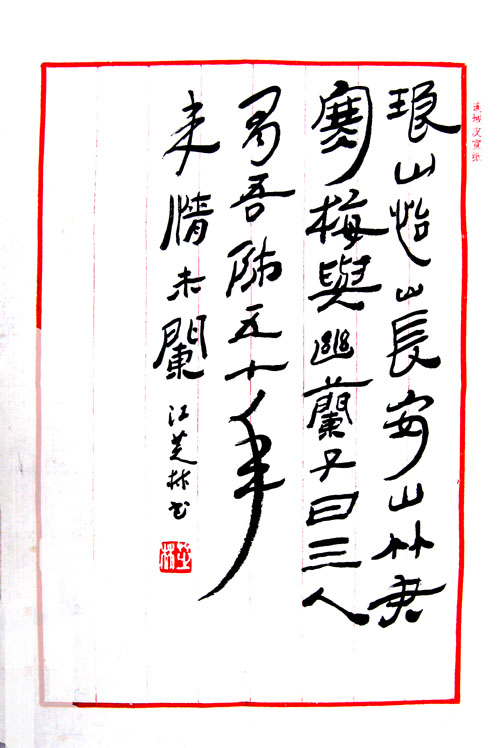 琅山怡山長安山竹君
寒梅與幽蘭子曰三人
有吾師五十年
来情未闌
江芝林书
芝林